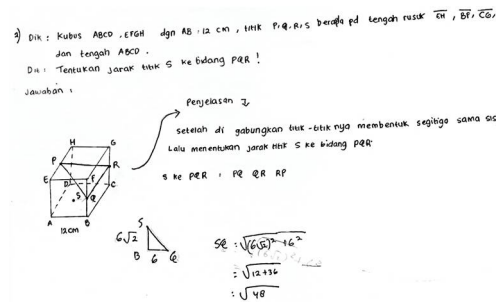 2) Dik : Kubus ABCD . EFGH dgn AB : 12 cm , titik P, Q, R, S berada pd tengah rusuk EH , BF , CG ,
dan tengah ABCD .
Dit : Tentukan jarak titik S ke bidang PQR !
Jawaban :
Penjelasan
setelah di gabungkan titik - titik nya membentuk segitiga sama sis
Lalu menentukan jarak titik S ke bidang PQR
S ke PQR : PQ QR RP
H G
P R
E F
D C
S Q
A B
12cm
S
6√2
B 6 Q
SQ : √(6√2)² + 6²
: √12+36
: √48